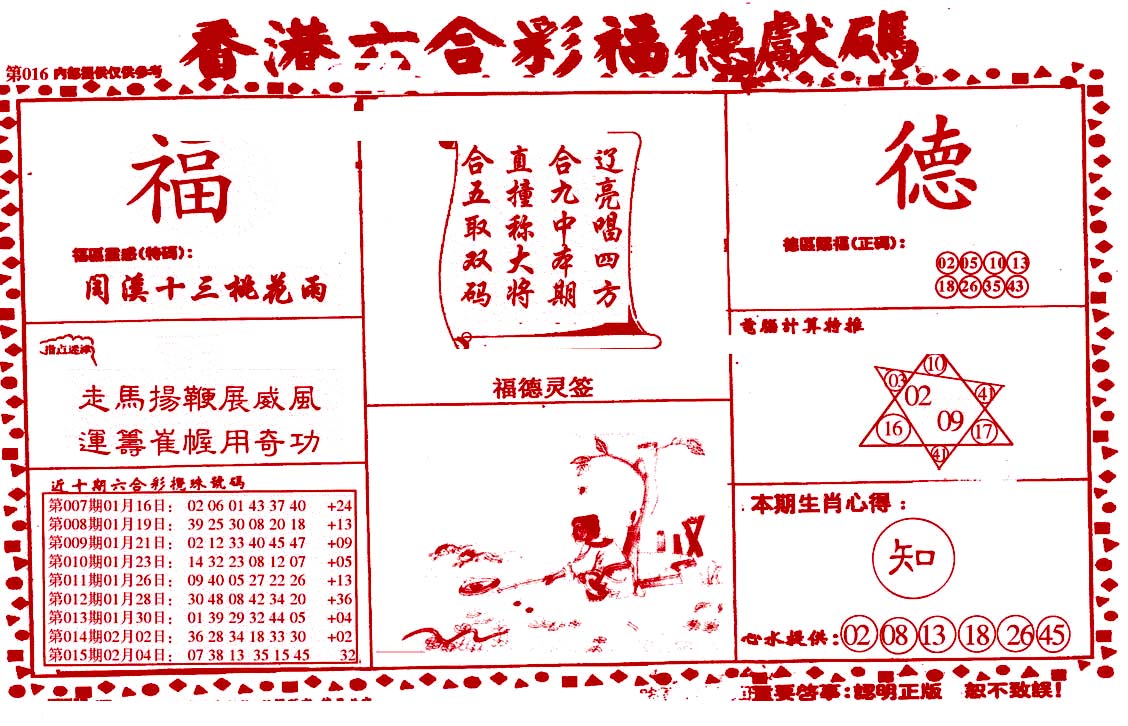 香港六合彩福德獻碼
第016 內部提供仅供参考
福
福區靈感(特碼):
閏溪十三桃花雨
指点迷津
走馬揚鞭展威風
運籌崔幄用奇功
近十期六合彩攪珠號碼
第007期01月16日: 02 06 01 43 37 40 +24
第008期01月19日: 39 25 30 08 20 18 +13
第009期01月21日: 02 12 33 40 45 47 +09
第010期01月23日: 14 32 23 08 12 07 +05
第011期01月26日: 09 40 05 27 22 26 +13
第012期01月28日: 30 48 08 42 34 20 +36
第013期01月30日: 01 39 29 32 44 05 +04
第014期02月02日: 36 28 34 18 33 30 +02
第015期02月04日: 07 38 13 35 15 45 32
辽亮唱四方
合九中本期
直撞称大将
合五取双码
福德灵签
德
德區賜福(正碼):
02 05 10 13
18 26 35 43
電腦計算特推
10
03 02 41
16 09 17
41
本期生肖心得:
知
心水提供: 02 08 13 18 26 45
重要啓事:認明正版 恕不致誤!